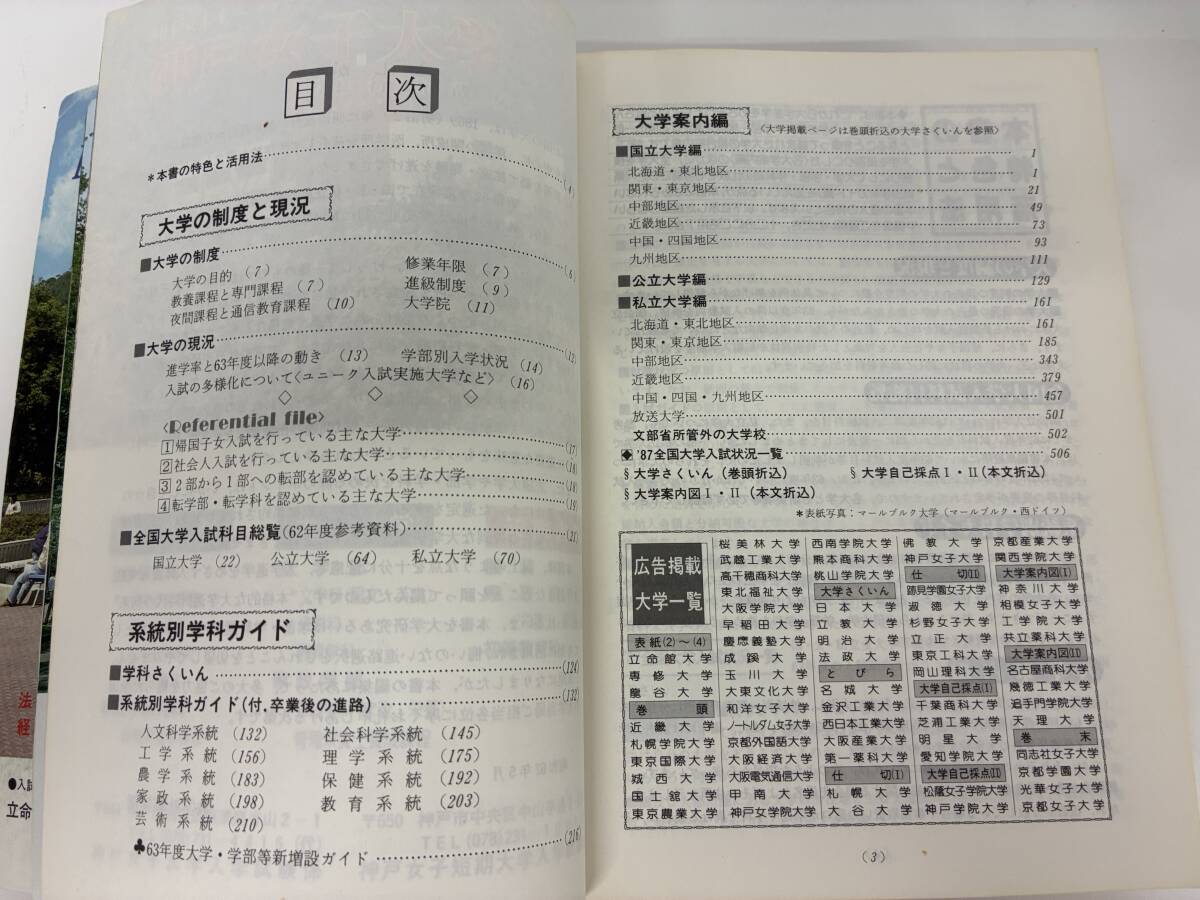 目次
＊本書の特色と活用法……(4)
大学の制度と現況
■大学の制度……(6)
大学の目的（7） 修業年限（7）
教養課程と専門課程（7） 進級制度（9）
夜間課程と通信教育課程（10） 大学院（11）
■大学の現況……(13)
進学率と63年度以降の動き（13） 学部別入学状況（14）
入試の多様化について〈ユニーク入試実施大学など〉（16）
◇ ◇ ◇
〈Referential file〉
1 帰国子女入試を行っている主な大学……(17)
2 社会人入試を行っている主な大学……(18)
3 2部から1部への転部を認めている主な大学……(18)
4 転学部・転学科を認めている主な大学……(19)
■全国大学入試科目総覧（62年度参考資料）……(21)
国立大学（22） 公立大学（64） 私立大学（70）
系統別学科ガイド
■学科さくいん……(124)
■系統別学科ガイド（付、卒業後の進路）……(132)
人文科学系統（132） 社会科学系統（145）
工学系統（156） 理学系統（175）
農学系統（183） 保健系統（192）
家政系統（198） 教育系統（203）
芸術系統（210）
♣63年度大学・学部等新増設ガイド……(216)
大学案内編 〈大学掲載ページは巻頭折込の大学さくいんを参照〉
■国立大学編……1
北海道・東北地区……1
関東・東京地区……21
中部地区……49
近畿地区……73
中国・四国地区……93
九州地区……111
■公立大学編……129
■私立大学編……161
北海道・東北地区……161
関東・東京地区……185
中部地区……343
近畿地区……379
中国・四国・九州地区……457
放送大学……501
文部省所管外の大学校……502
◆'87全国大学入試状況一覧……506
§大学さくいん（巻頭折込） §大学自己採点Ⅰ・Ⅱ（本文折込）
§大学案内図Ⅰ・Ⅱ（本文折込）
＊表紙写真：マールブルク大学（マールブルク・西ドイツ）
広告掲載
大学一覧
表紙(2)〜(4)
立命館大学
専修大学
龍谷大学
巻頭
近畿大学
札幌学院大学
東京国際大学
城西大学
国士舘大学
東京農業大学
桜美林大学
武蔵工業大学
高千穂商科大学
東北福祉大学
大阪学院大学
早稲田大学
慶應義塾大学
成蹊大学
玉川大学
大東文化大学
和洋女子大学
ノートルダム女子大学
京都外国語大学
大阪経済大学
大阪電気通信大学
甲南大学
神戸女学院大学
西南学院大学
熊本商科大学
桃山学院大学
大学さくいん
日本大学
立教大学
明治大学
法政大学
とびら
名城大学
金沢工業大学
西日本工業大学
大阪産業大学
第一薬科大学
仕切(Ⅰ)
札幌大学
大谷大学
佛教大学
神戸女子大学
仕切(Ⅱ)
跡見学園女子大学
淑徳大学
杉野女子大学
立正大学
東京工科大学
岡山理科大学
大学自己採点(Ⅰ)
千葉商科大学
芝浦工業大学
明星大学
愛知学院大学
大学自己採点(Ⅱ)
松蔭女子学院大学
神戸学院大学
京都産業大学
関西学院大学
大学案内図(Ⅰ)
神奈川大学
相模女子大学
工学院大学
共立薬科大学
大学案内図(Ⅱ)
名古屋商科大学
幾徳工業大学
追手門学院大学
天理大学
巻末
同志社女子大学
京都学園大学
光華女子大学
京都女子大学
（3）
法
経
●入試
立命